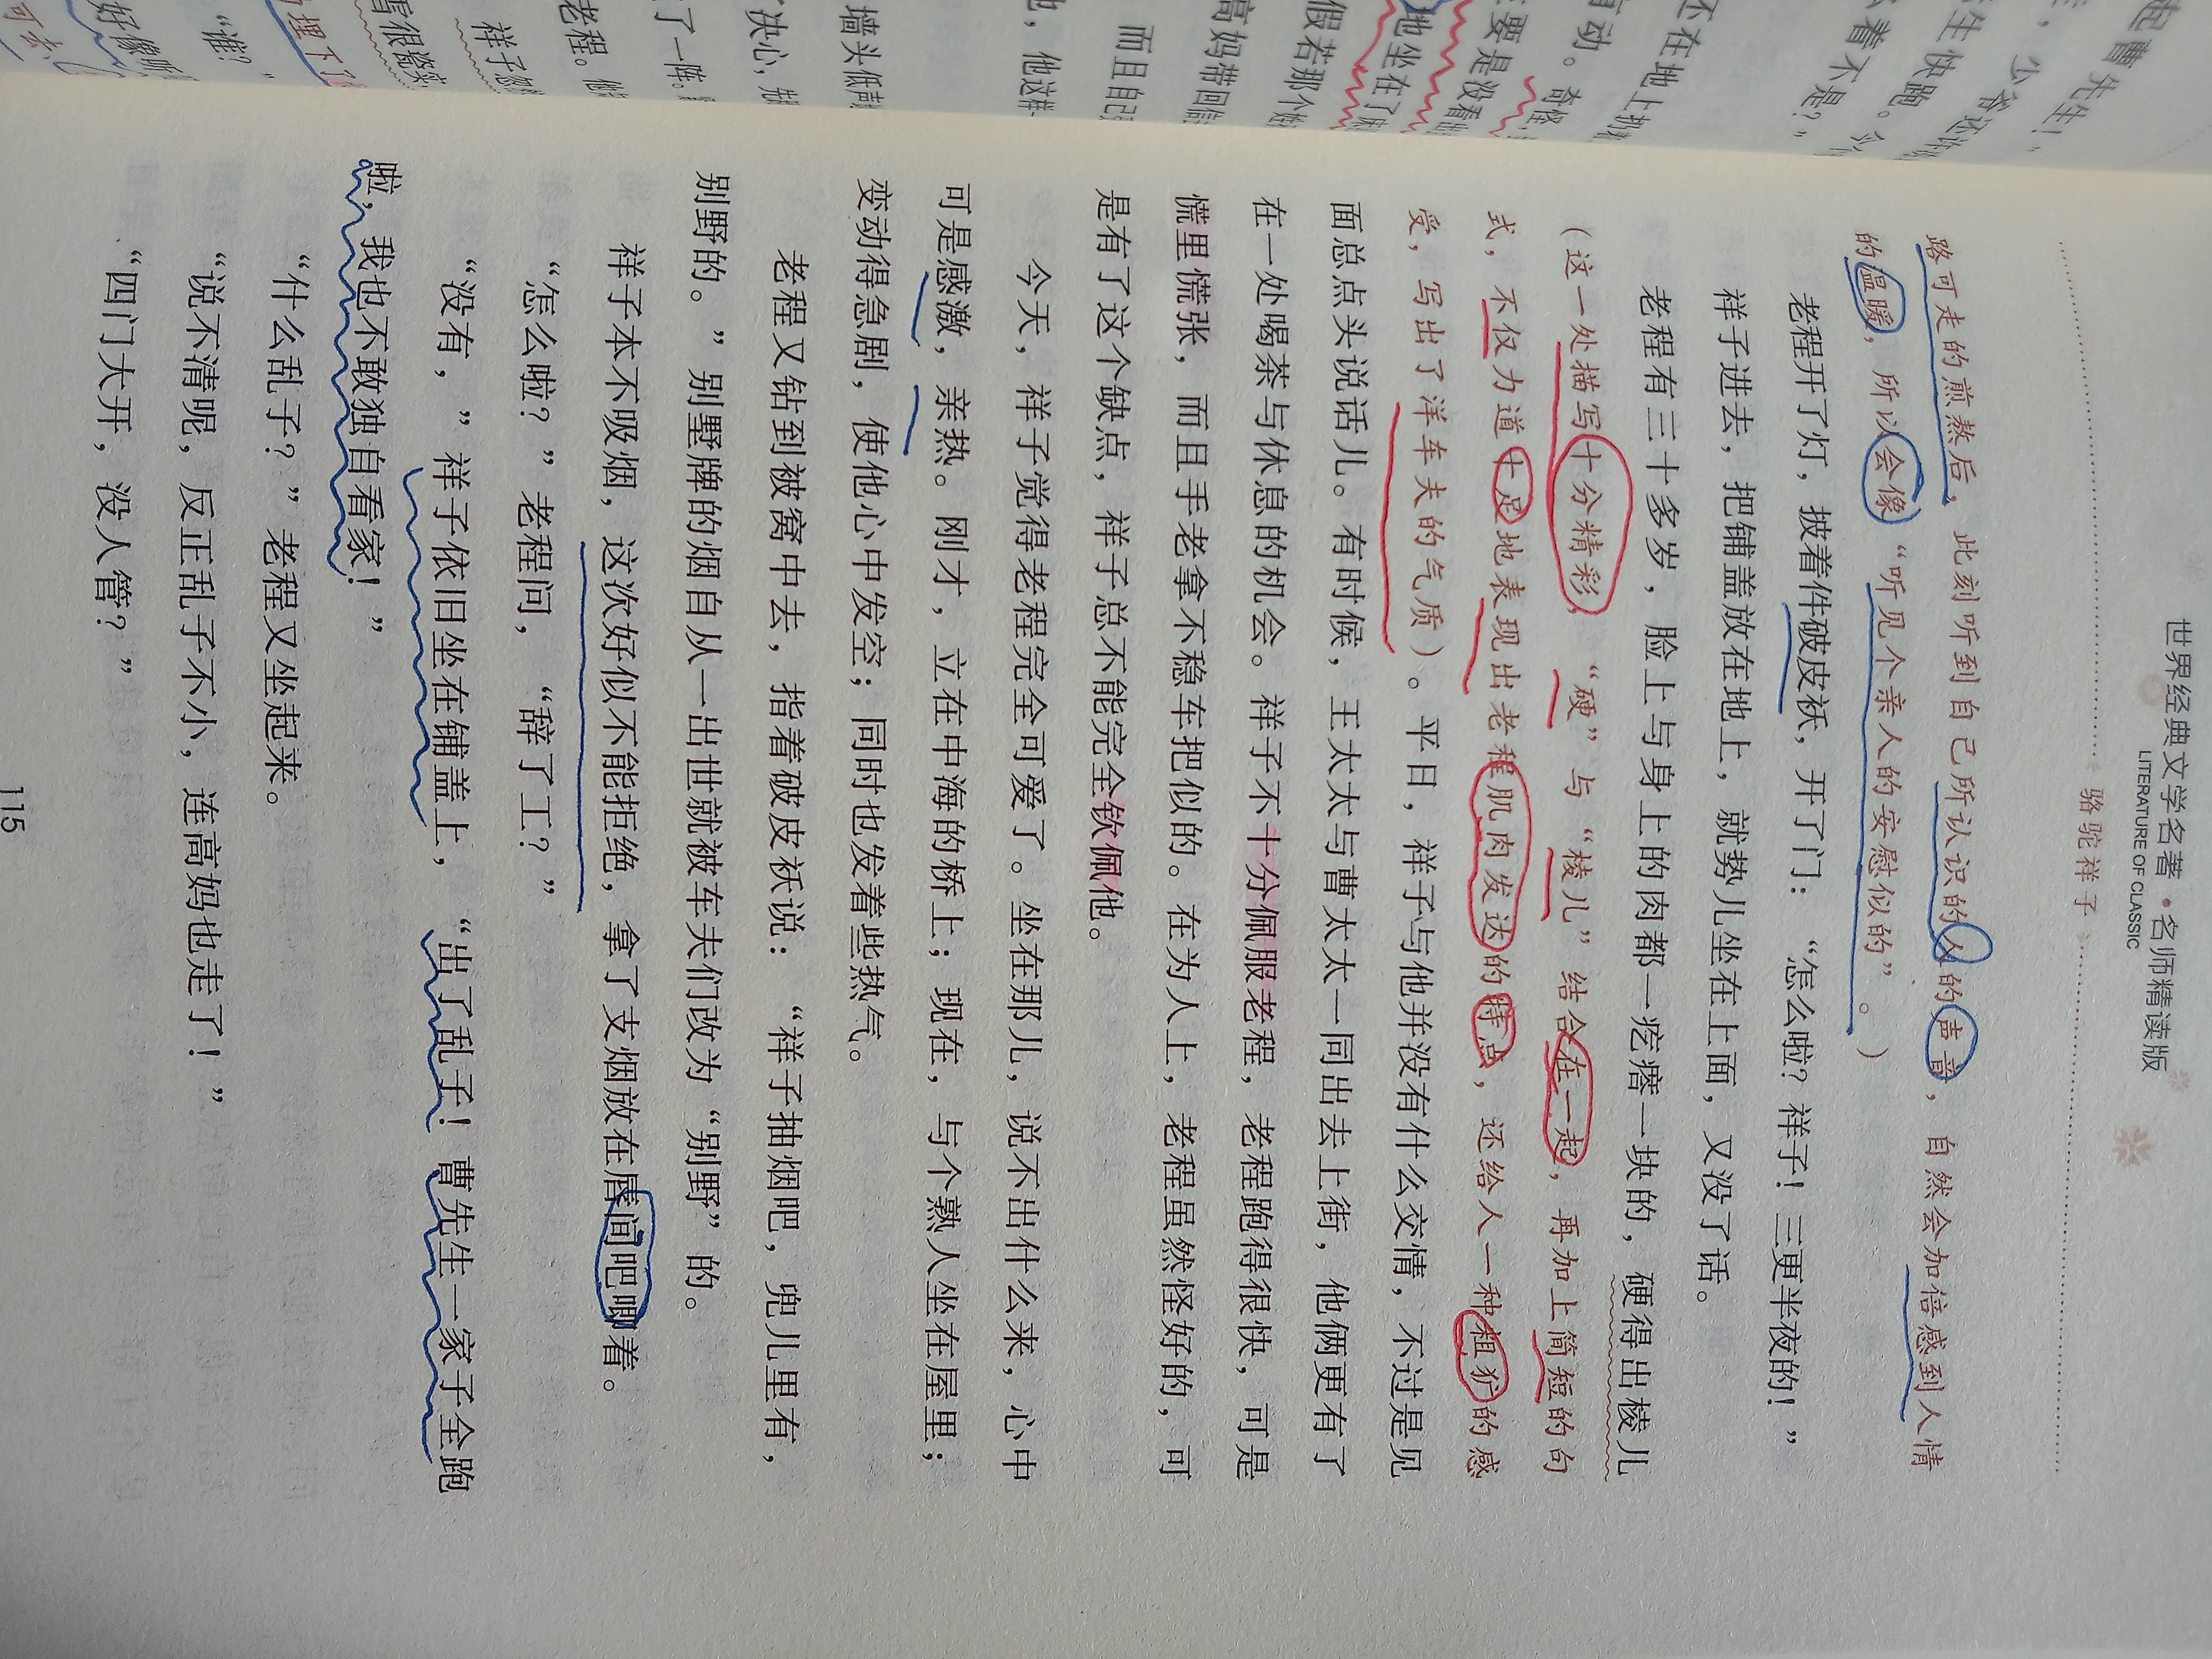 世界经典文学名著·名师精读版
LITERATURE OF CLASSIC
骆驼祥子
路可走的煎熬后，此刻听到自己所认识的人的声音，自然会加倍感到人情
的温暖，所以会像“听见个亲人的安慰似的”。）
老程开了灯，披着件破皮袄，开了门：“怎么啦？祥子！三更半夜的！”
祥子进去，把铺盖放在地上，就势儿坐在上面，又没了话。
老程有三十多岁，脸上与身上的肉都一疙瘩一块的，硬得出棱儿
（这一处描写十分精彩，“硬”与“棱儿”结合在一起，再加上简短的句
式，不仅力道十足地表现出老程肌肉发达的特点，还给人一种粗犷的感
受，写出了洋车夫的气质）。平日，祥子与他并没有什么交情，不过是见
面总点点头说话儿。有时候，王太太与曹太太一同出去上街，他俩更有了
在一处喝茶与休息的机会。祥子不十分佩服老程，老程跑得很快，可是
慌里慌张，而且手老拿不稳车把似的。在为人上，老程虽然怪好的，可
是有了这个缺点，祥子总不能完全钦佩他。
今天，祥子觉得老程完全可爱了。坐在那儿，说不出什么来，心中
可是感激，亲热。刚才，立在中海的桥上；现在，与个熟人坐在屋里；
变动得急剧，使他心中发空；同时也发着些热气。
老程又钻到被窝中去，指着破皮袄说：“祥子抽烟吧，兜儿里有，
别野的。”别墅牌的烟自从一出世就被车夫们改为“别野”的。
祥子本不吸烟，这次好似不能拒绝，拿了支烟放在唇间吧唧着。
“怎么啦？”老程问，“辞了工？”
“没有，”祥子依旧坐在铺盖上，“出了乱子！曹先生一家子全跑
啦，我也不敢独自看家！”
“什么乱子？”老程又坐起来。
“说不清呢，反正乱子不小，连高妈也走了！”
“四门大开，没人管？”
115